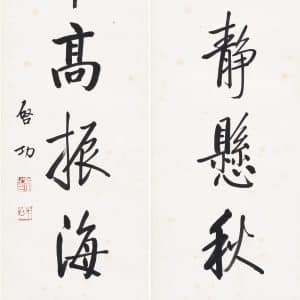 静懸秋
高振海
啓功